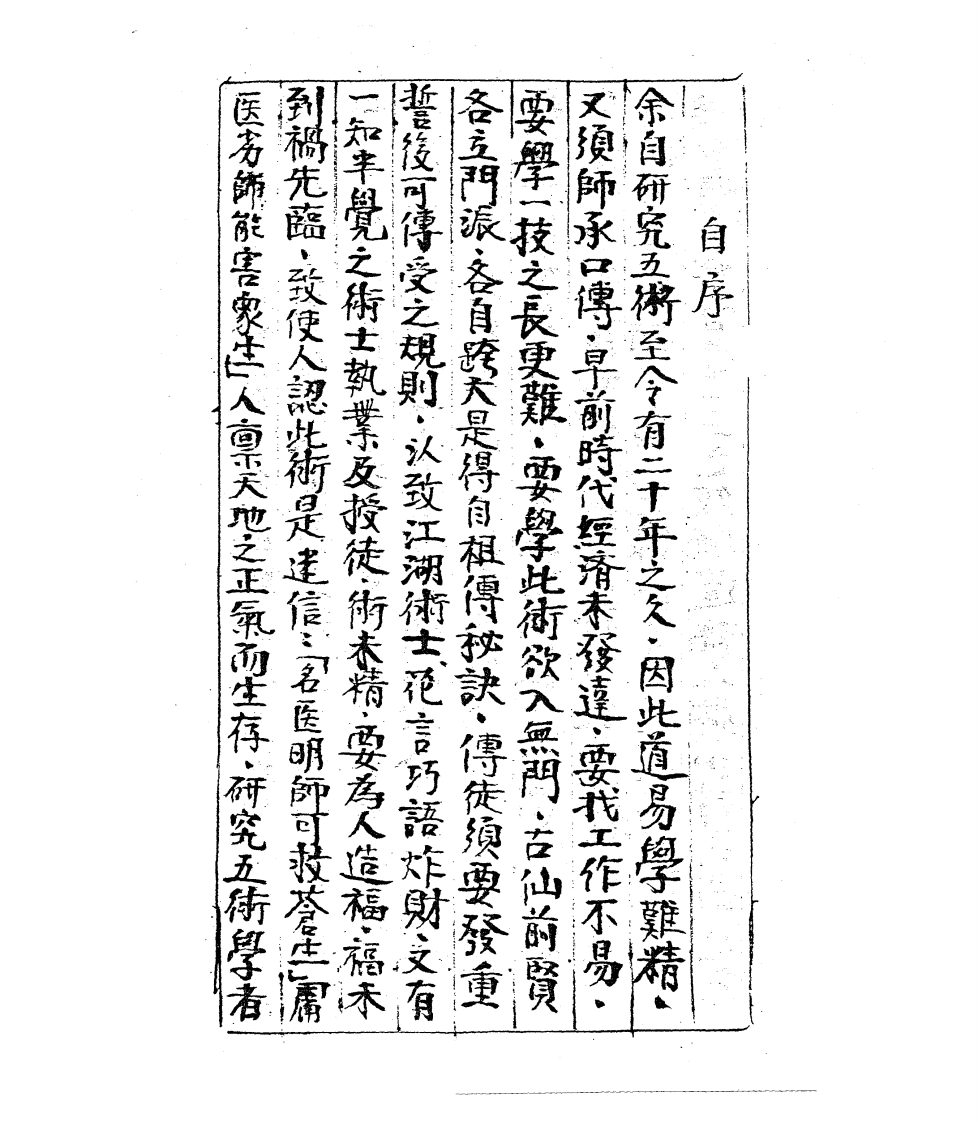 自序
余自研究五術至今有二十年之久．因此道易學難精．
又須師承口傳．早前時代經濟未發達．要找工作不易．
要學一技之長更難．要學此術欲入無門．古仙前賢
各立門派．各自跨大是得自祖傳秘訣．傳徒須要發重
誓後可傳受之規則．以致江湖術士花言巧語炸財．又有
一知半覺之術士執業及授徒．術未精．要為人造福．福未
到禍先臨．致使人認此術是迷信：「名医明師可救蒼生」庸
医劣師能害衆生」人禀天地之正氣而生存．研究五術學者